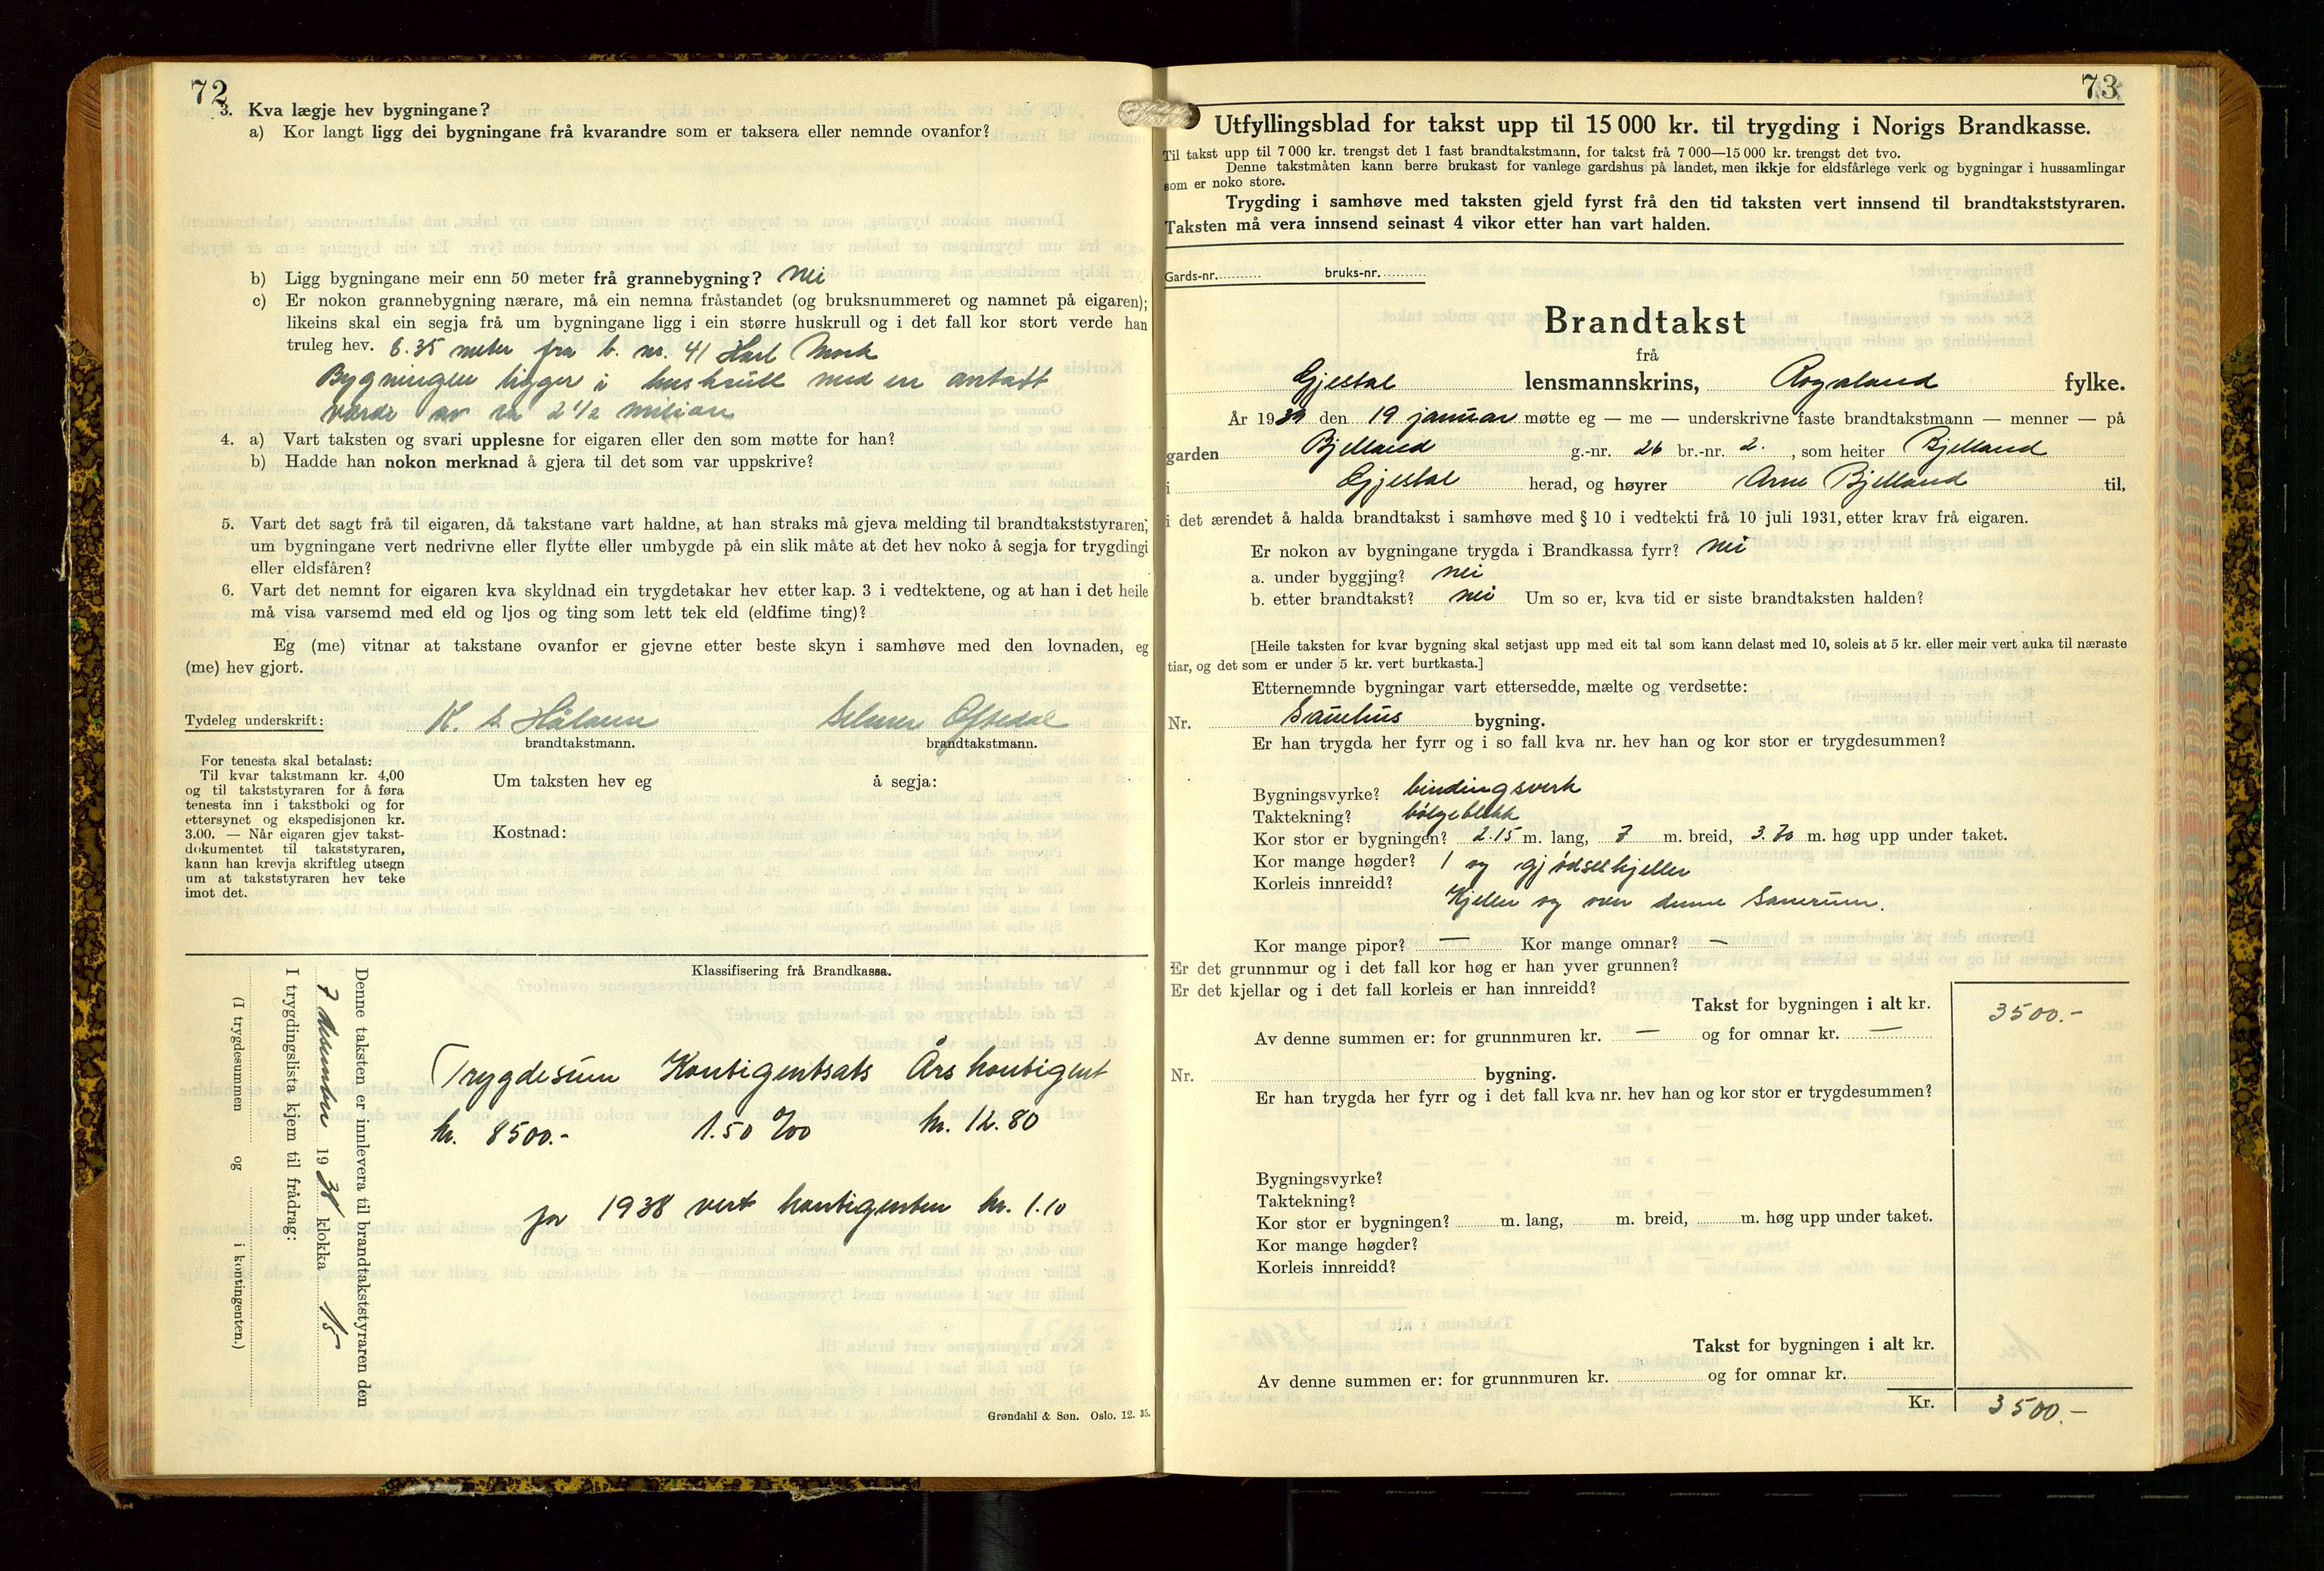 72
3. Kva lægje hev bygningane?
a) Kor langt ligg dei bygningane frå kvarandre som er taksera eller nemnde ovanfor?
b) Ligg bygningane meir enn 50 meter frå grannebygning? Nei
c) Er nokon grannebygning nærare, må ein nemna fråstandet (og bruksnummeret og namnet på eigaren);
likeins skal ein segja frå um bygningane ligg i ein større huskrull og i det fall kor stort verde han
truleg hev. 8.35 meter fra b. nr. 41 Karl Mork
Bygningen ligger i huskrull med en antatt
værdi av ca 2 1/2 milion
4. a) Vart taksten og svari upplesne for eigaren eller den som møtte for han?
b) Hadde han nokon merknad å gjera til det som var uppskrive?
5. Vart det sagt frå til eigaren, då takstane vart haldne, at han straks må gjeva melding til brandtakststyraren,
um bygningane vert nedrivne eller flytte eller umbygde på ein slik måte at det hev noko å segja for trygdingi
eller eldsfåren?
6. Vart det nemnt for eigaren kva skyldnad ein trygdetakar hev etter kap. 3 i vedtektene, og at han i det heile
må visa varsemd med eld og ljos og ting som lett tek eld (eldfime ting)?
Eg (me) vitnar at takstane ovanfor er gjevne etter beste skyn i samhøve med den lovnaden, eg
(me) hev gjort.
Tydeleg underskrift: K. S. Håland Selmer Oftedal
brandtakstmann. brandtakstmann.
For tenesta skal betalast:
Til kvar takstmann kr. 4,00
og til takststyraren for å føra
tenesta inn i takstboki og for
ettersynet og ekspedisjonen kr.
3.00. — Når eigaren gjev takst-
dokumentet til takststyraren,
kann han krevja skriftleg utsegn
um at takststyraren hev teke
imot det.
Um taksten hev eg å segja:
Kostnad:
Klassifisering frå Brandkassa.
Denne taksten er innlevera til brandtakststyraren den
7 desember 1938 klokka 15
I trygdingslista kjem til frådrag:
(I trygdesummen og i kontingenten.)
Trygdesum Kontigentsats Års kontigent
kr. 8500.- 1.50 0/00 kr. 12.80
for 1938 vert kontigenten kr. 1.10
Grøndahl & Søn. Oslo. 12. 35.
73
Utfyllingsblad for takst upp til 15 000 kr. til trygding i Norigs Brandkasse.
Til takst upp til 7 000 kr. trengst det 1 fast brandtakstmann, for takst frå 7 000—15 000 kr. trengst det tvo.
Denne takstmåten kann berre brukast for vanlege gardshus på landet, men ikkje for eldsfårlege verk og bygningar i hussamlingar
som er noko store.
Trygding i samhøve med taksten gjeld fyrst frå den tid taksten vert innsend til brandtakststyraren.
Taksten må vera innsend seinast 4 vikor etter han vart halden.
Gards-nr. bruks-nr.
Brandtakst
frå
Gjestal lensmannskrins, Rogaland fylke.
År 1939 den 19 januar møtte eg — me — underskrivne faste brandtakstmann — menner — på
garden Bjelland g.-nr. 26 br.-nr. 2. , som heiter Bjelland
i Gjestal herad, og høyrer Arne Bjelland til,
i det ærendet å halda brandtakst i samhøve med § 10 i vedtekti frå 10 juli 1931, etter krav frå eigaren.
Er nokon av bygningane trygda i Brandkassa fyrr? nei
a. under byggjing? nei
b. etter brandtakst? nei Um so er, kva tid er siste brandtaksten halden?
[Heile taksten for kvar bygning skal setjast upp med eit tal som kann delast med 10, soleis at 5 kr. eller meir vert auka til næraste
tiar, og det som er under 5 kr. vert burtkasta.]
Etternemnde bygningar vart ettersedde, mælte og verdsette:
Nr. Sauehus bygning.
Er han trygda her fyrr og i so fall kva nr. hev han og kor stor er trygdesummen?
Bygningsvyrke? bindingsverk
Taktekning? bølgeblekk
Kor stor er bygningen? 2.15 m. lang, 7 m. breid, 3.70 m. høg upp under taket.
Kor mange høgder? 1 og gjødselkjeller
Korleis innreidd?
Kjeller og over denne sauerum.
Kor mange pipor? — Kor mange omnar? —
Er det grunnmur og i det fall kor høg er han yver grunnen?
Er det kjellar og i det fall korleis er han innreidd?
Takst for bygningen i alt kr. 3500.-
Av denne summen er: for grunnmuren kr. — og for omnar kr. —
Nr. bygning.
Er han trygda her fyrr og i det fall kva nr. hev han og kor stor er trygdesummen?
Bygningsvyrke?
Taktekning?
Kor stor er bygningen? m. lang, m. breid, m. høg upp under taket.
Kor mange høgder?
Korleis innreidd?
Takst for bygningen i alt kr.
Av denne summen er: for grunnmuren kr. og for omnar kr.
Kr. 3500.-